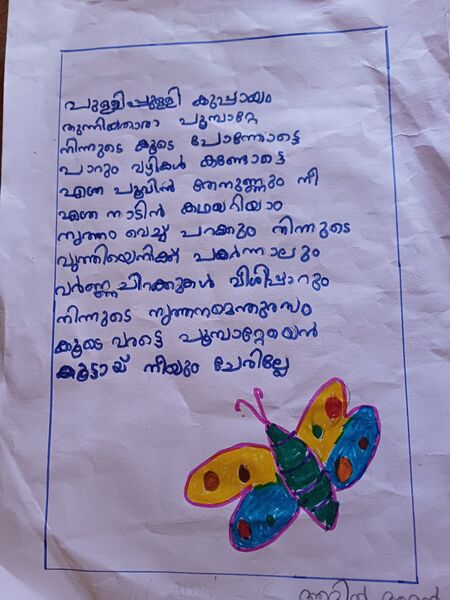 പുള്ളിപ്പുള്ളി കുപ്പായം
തുന്നിയതാരാ പൂമ്പാറ്റേ
നിന്നുടെ കൂടെ പോന്നോട്ടെ
പാറും വഴികൾ കണ്ടോട്ടെ
എത്ര പൂവിൻ തേനുണ്ണും നീ
എത്ര നാടിൻ കഥയറിയാം
നൃത്തം വെച്ച് പറക്കും നിന്നുടെ
വൃത്തിയെനിക്ക് പകർന്നാലും
വർണ്ണച്ചിറകുകൾ വീശിപ്പാറും
നിന്നുടെ നൃത്തനമെന്തുരസം
കൂടെ വരട്ടെ പൂമ്പാറ്റേയെൻ
കൂട്ടായ് നീയും ചേരില്ലേ